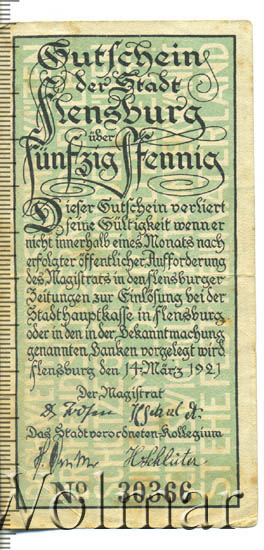 Gutschein
der Stadt
Flensburg
über
Fünfzig Pfennig
Dieser Gutschein verliert
seine Gültigkeit wenn er
nicht innerhalb eines Monats nach
erfolgter öffentlicher Aufforderung
des Magistrats in den flensburger
Zeitungen zur Einlösung bei der
Stadthauptkasse in flensburg
oder in den in der Bekanntmachung
genannten Banken vorgelegt wird
flensburg den 14. März 1921
Der Magistrat
Das Stadtverordneten-Kollegium
H. Schlüter
No 39366
Wolmar